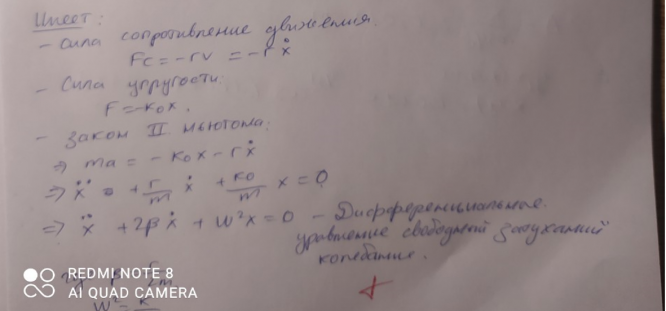 Имеет:
- Сила сопротивление движения.
Fc = -rv = -rẋ
- Сила упругости:
F = -k₀x.
- Закон II Ньютона:
⇒ ma = -k₀x - rẋ
⇒ ẍ + r/m ẋ + k₀/m x = 0
⇒ ẍ + 2βẋ + w²x = 0 - Дифференциальное
уравнение свободный затуханий
колебание.
REDMI NOTE 8
AI QUAD CAMERA